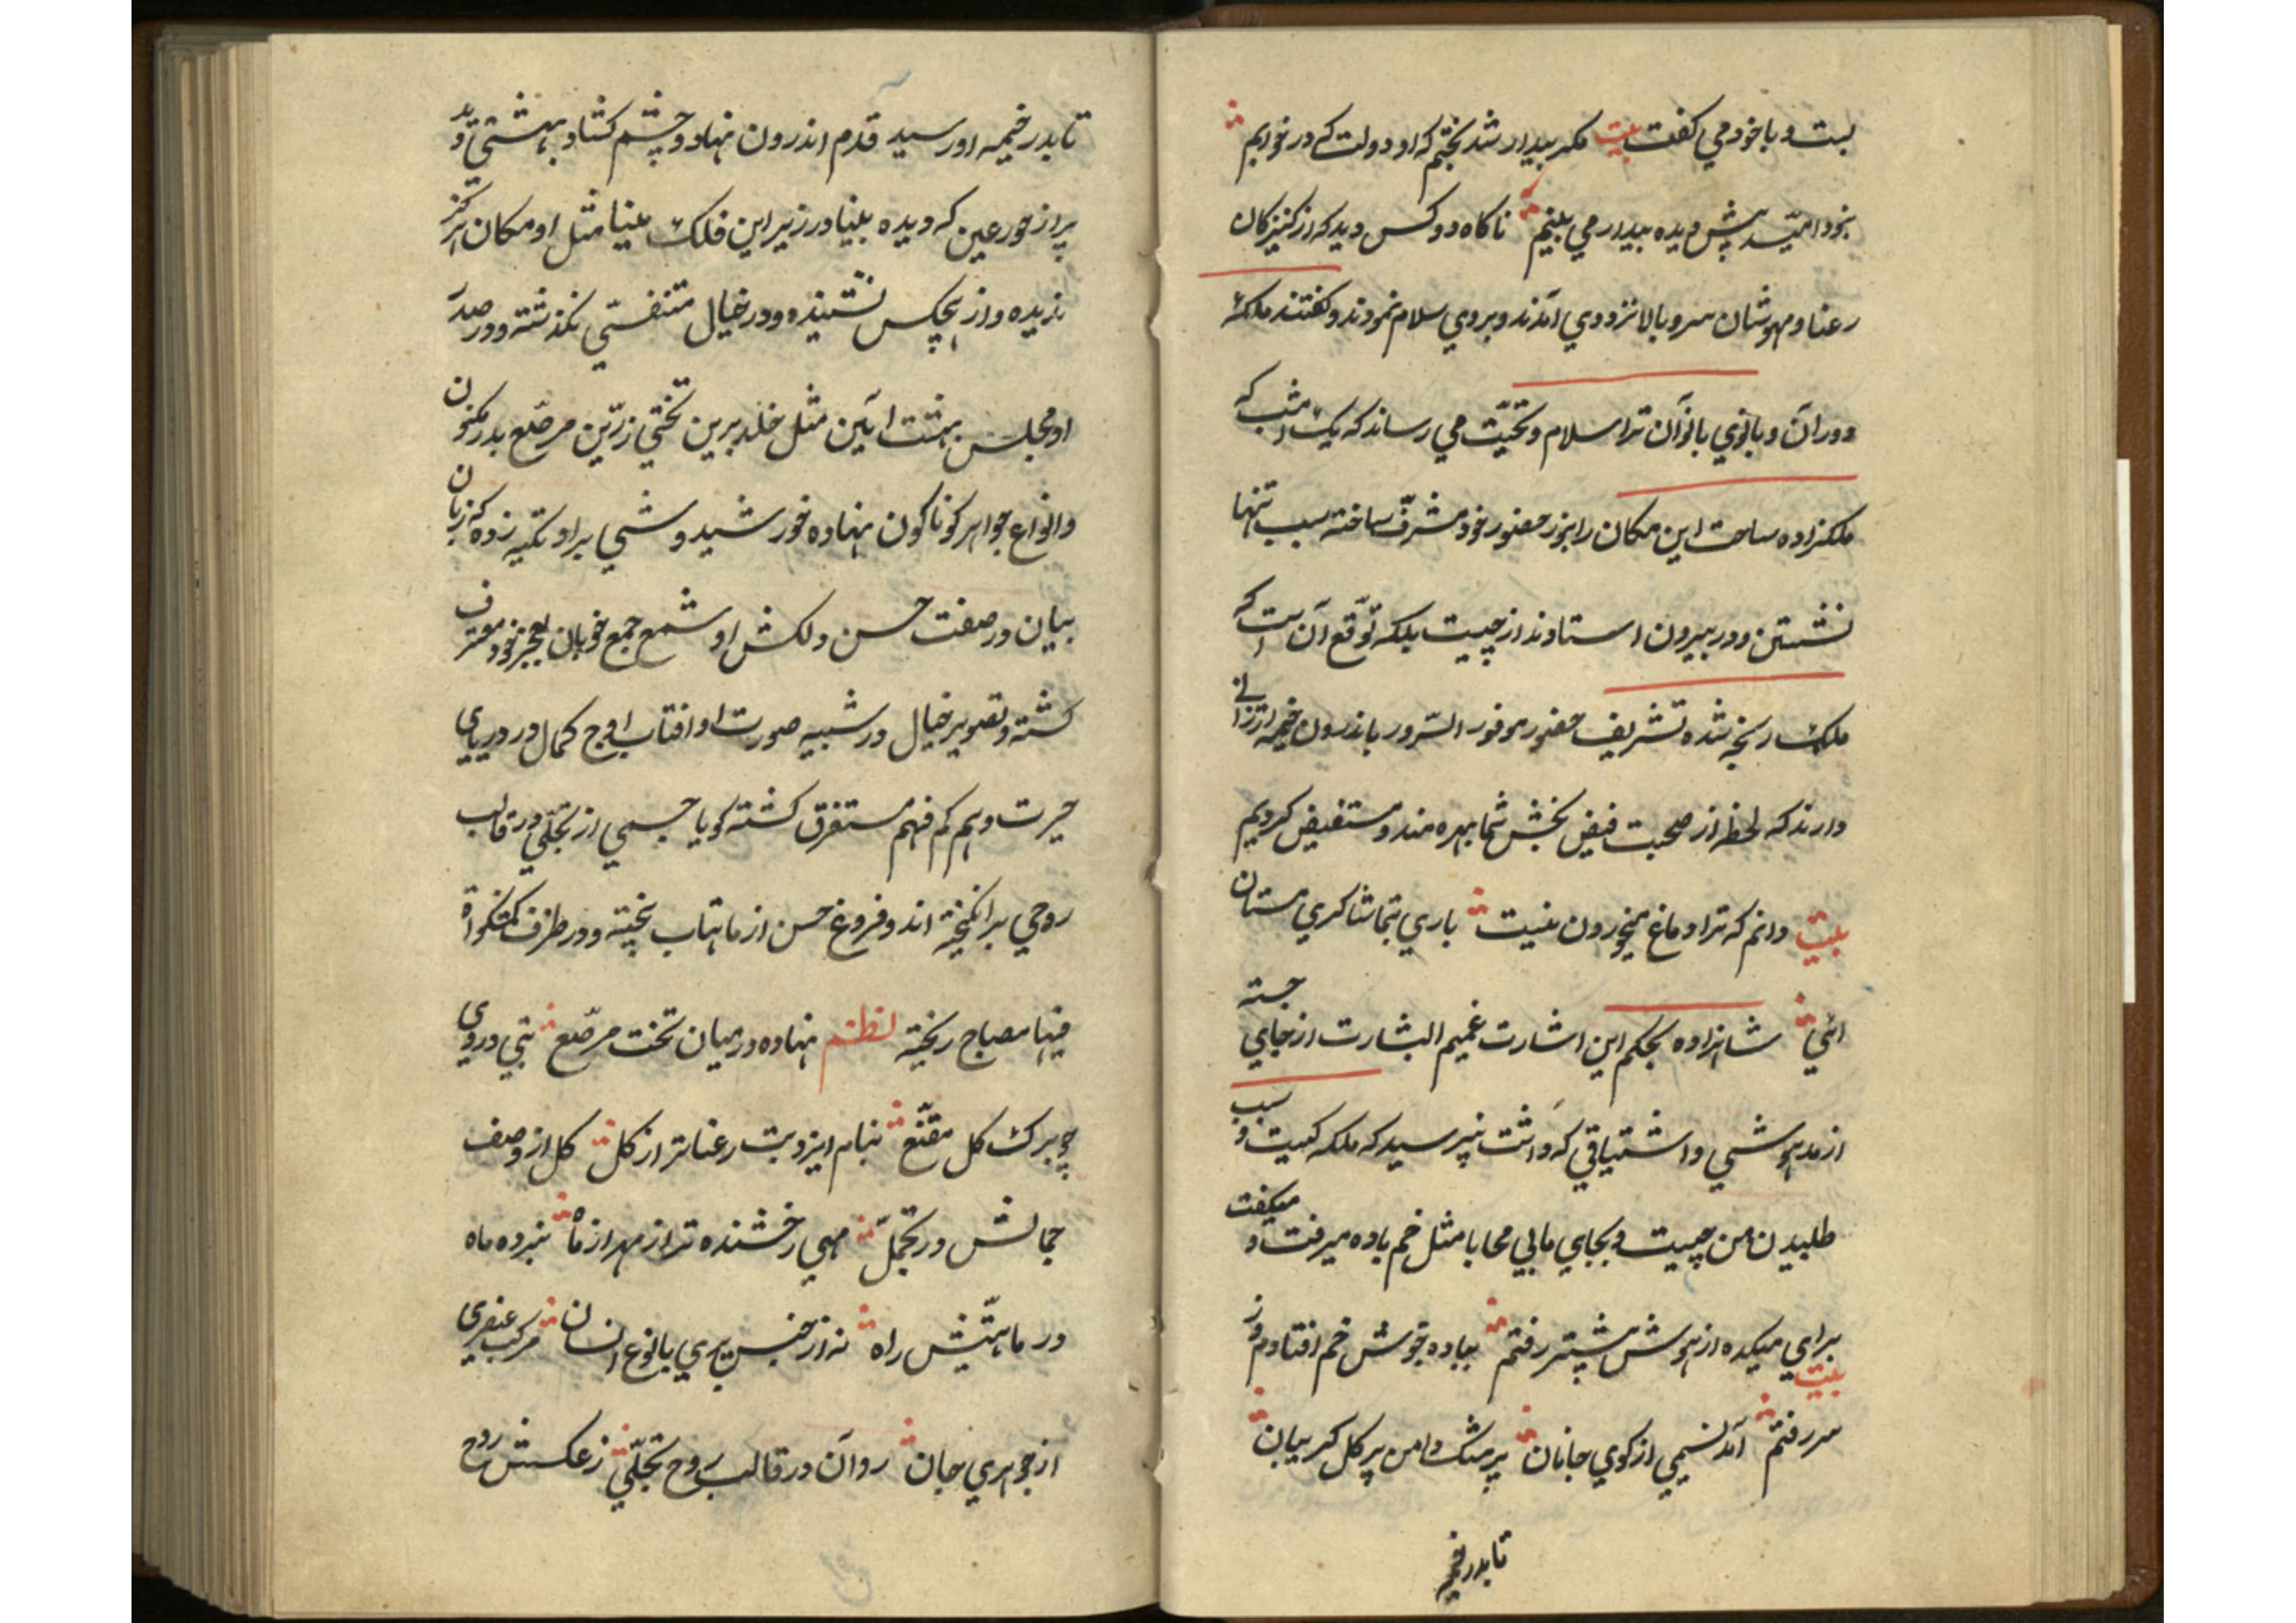 بست و با خود می کفت بیت مکر بیدار شد بختم که او دولت که در خوابم
بخود امّید پیش دیده بیدار می بینم ناکاه دو کس دید که از کنیزکان
رعنا و مهوشان سرو بالا نزد وی آمدند و بروی سلام نمودند و کفتند ملکهٔ
دوران و بانوی بانوآن ترا سلام و تحیّت می رساند که یک امشب که
ملکزاده ساحت این مکان را بنور حضور خود مشرّف ساخته سبب تنها
نشستن و در بیرون استادند از چیست بلکه توقّع آن است که
ملک رنجه شده تشریف حضور موفور السّرور باندرون خیمه ارزانی
دارند که لحظه از صحبت فیض بخش شما بهره مند و مستفیض کردیم
بیت دانم که ترا دماغ میخوردن نیست باری بتماشا کری مستان
ائی شاهزاده بحکم این اشارت عمیم البشارت از جای جسته
از مدهوشی و اشتیاقی که داشت نپرسید که ملکه کیست و سبب
طلبیدن من چیست و بجای مابی محابا مثل خم باده میرفت و میکفت
برای میکده از هوش پیشتر رفتم بباده جوش خم افتادم و ز
بیت
سر رفتم آمد نسیمی از کوی جانان پر مشک دامن پر کل کریبان
تا بدر خیمه
تا بدر خیمه او رسید قدم اندرون نهاد و چشم کشاد بهشتی دید
پر از حور عین که دیده بینا در زیر این فلک مینا مثل او مکان هرکز
ندیده و از هیچکس نشنیده و در خیال متنفسّی نکذشته و در صدر
او مجلس بهشت آیین مثل خلد برین تختی زرّین مرصّع بدر مکنون
و انواع جواهر کوناکون نهاده خورشید وشی براو تکیه زده که زبان
بیان در صفت حسن دلکش او شمع جمع خوبان بعجز خود معترف
کشته و تصویر خیال در شبیه صورت او افتاب اوج کمال در دریای
حیرت وهم کم فهم مستغرق کشته کویا جسمی از تجلّی در قالب
روحی برانکیخته اند و فروغ حسن از ماهتاب بیخته و در ظرف کمشکواة
فیها مصباح ریخته نظم نهاده در میان تخت مرصّع بتی در وی
چو برک کل مقنّع بنام ایزد بت رعناتر از کل کل از وصف
جمالش در تجمّل مهی رخشنده تر از مهر از ماه نبرده ماه
در ماهیّتش راه نه از جنس پری یا نوع انسان مرکب عنصری
از جوهری جان روآن در قالب روح تجلّی ز عکسش روح